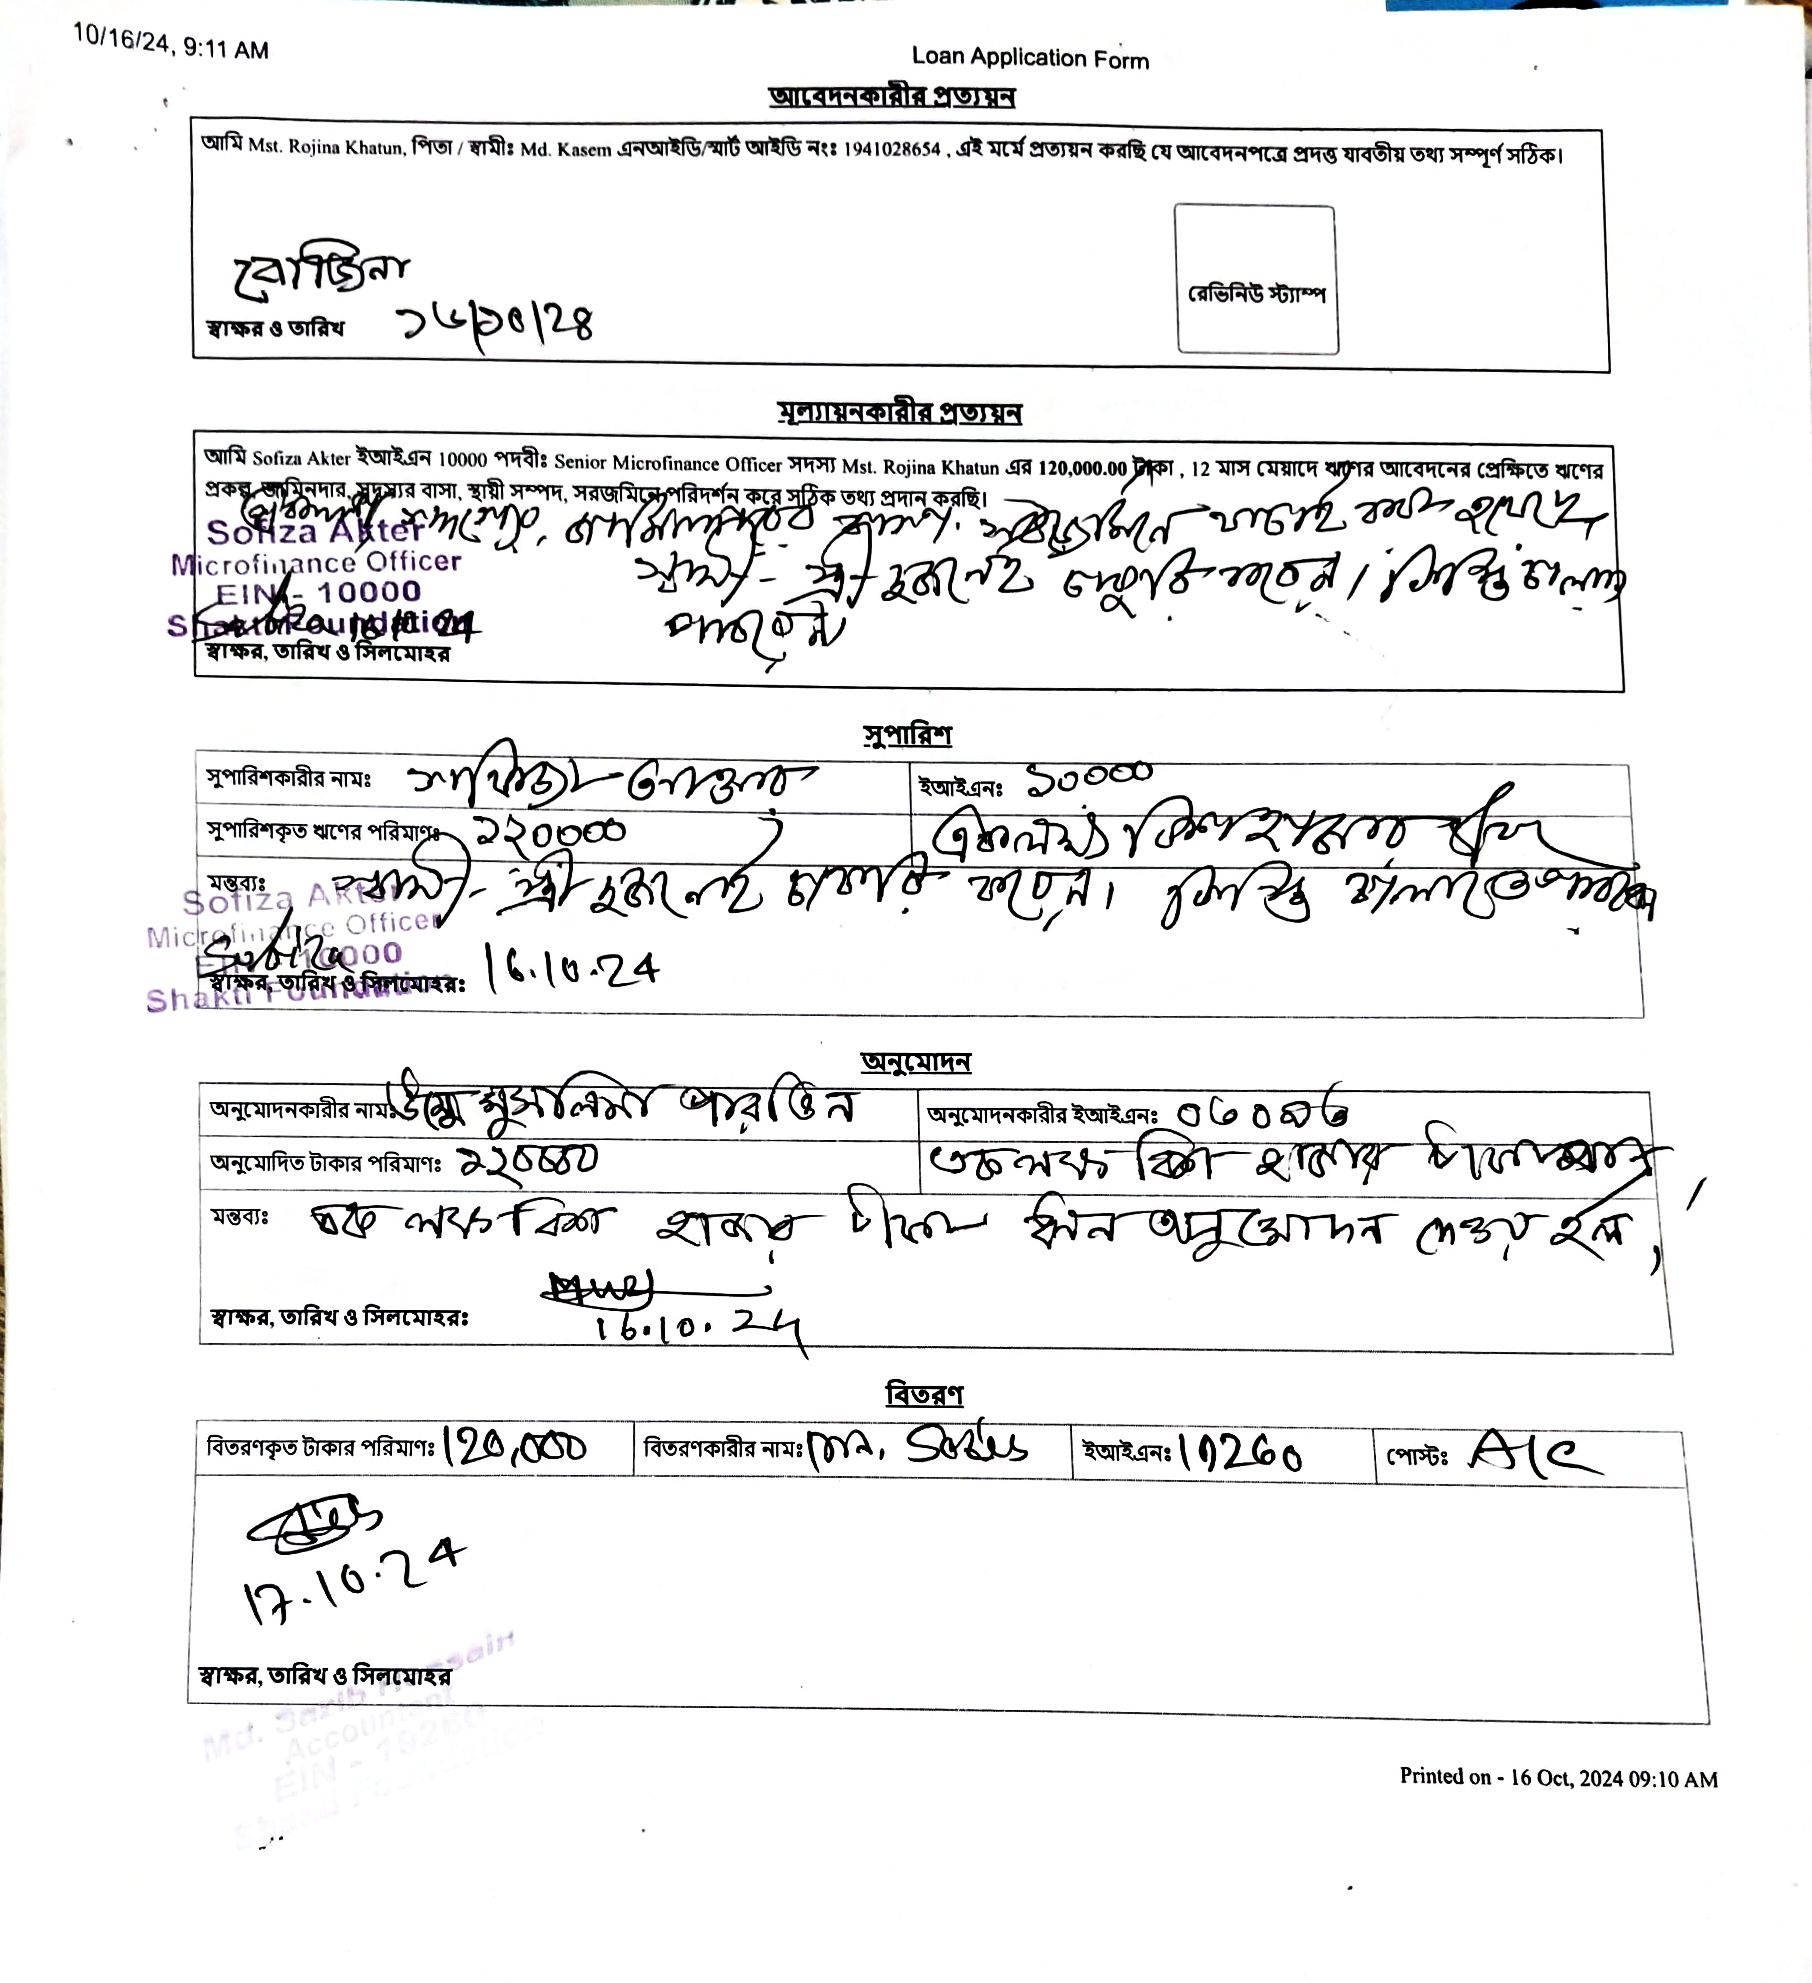 10/16/24, 9:11 AM
Loan Application Form
আবেদনকারীর প্রত্যয়ন
আমি Mst. Rojina Khatun, পিতা / স্বামীঃ Md. Kasem এনআইডি/স্মার্ট আইডি নংঃ 1941028654 , এই মর্মে প্রত্যয়ন করছি যে আবেদনপত্রে প্রদত্ত যাবতীয় তথ্য সম্পূর্ণ সঠিক।
রোজিনা
রেভিনিউ স্ট্যাম্প
স্বাক্ষর ও তারিখ ১৬/১০/২৪
মূল্যায়নকারীর প্রত্যয়ন
আমি Sofiza Akter ইআইএন 10000 পদবীঃ Senior Microfinance Officer সদস্য Mst. Rojina Khatun এর 120,000.00 টাকা , 12 মাস মেয়াদে ঋণের আবেদনের প্রেক্ষিতে ঋণের
প্রকল্প, জামিনদার, সদস্যর বাসা, স্থায়ী সম্পদ, সরজমিনে পরিদর্শন করে সঠিক তথ্য প্রদান করছি।
জামিনদারের বাসা, সরজমিনে যাচাই করা হয়েছে
Sofiza Akter
Microfinance Officer
স্বামী - স্ত্রী দুজনেই চাকুরি করেন। কিস্তি চালাতে
EIN - 10000
Shakti Foundation
16.10.24
পারবেন
স্বাক্ষর, তারিখ ও সিলমোহর
সুপারিশ
সুপারিশকারীর নামঃ সাফিজা আক্তার
ইআইএনঃ ১০০০০
সুপারিশকৃত ঋণের পরিমাণঃ ১২০০০০
একলক্ষ বিশ হাজার
মন্তব্যঃ স্বামী - স্ত্রী দুজনেই চাকরি করেন। কিস্তি চালাতে পারবেন
Sofiza Akter
Microfinance Officer
EIN - 10000
Shakti Foundation
Sofiza
স্বাক্ষর, তারিখ ও সিলমোহরঃ 16.10.24
অনুমোদন
অনুমোদনকারীর নামঃ উম্মে মুসলিমা পারভিন
অনুমোদনকারীর ইআইএনঃ
অনুমোদিত টাকার পরিমাণঃ ১২০০০০
একলক্ষ বিশ হাজার টাকা মাত্র।
মন্তব্যঃ এক লক্ষ বিশ হাজার টাকা ঋন অনুমোদন দেওয়া হল,
স্বাক্ষর, তারিখ ও সিলমোহরঃ 16.10.24
বিতরণ
বিতরণকৃত টাকার পরিমাণঃ 120,000
বিতরণকারীর নামঃ
ইআইএনঃ 19260
পোস্টঃ A/C
17.10.24
স্বাক্ষর, তারিখ ও সিলমোহর
Md. Sazib Hossain
Accountant
EIN - 19260
Shakti Foundation
Printed on - 16 Oct, 2024 09:10 AM